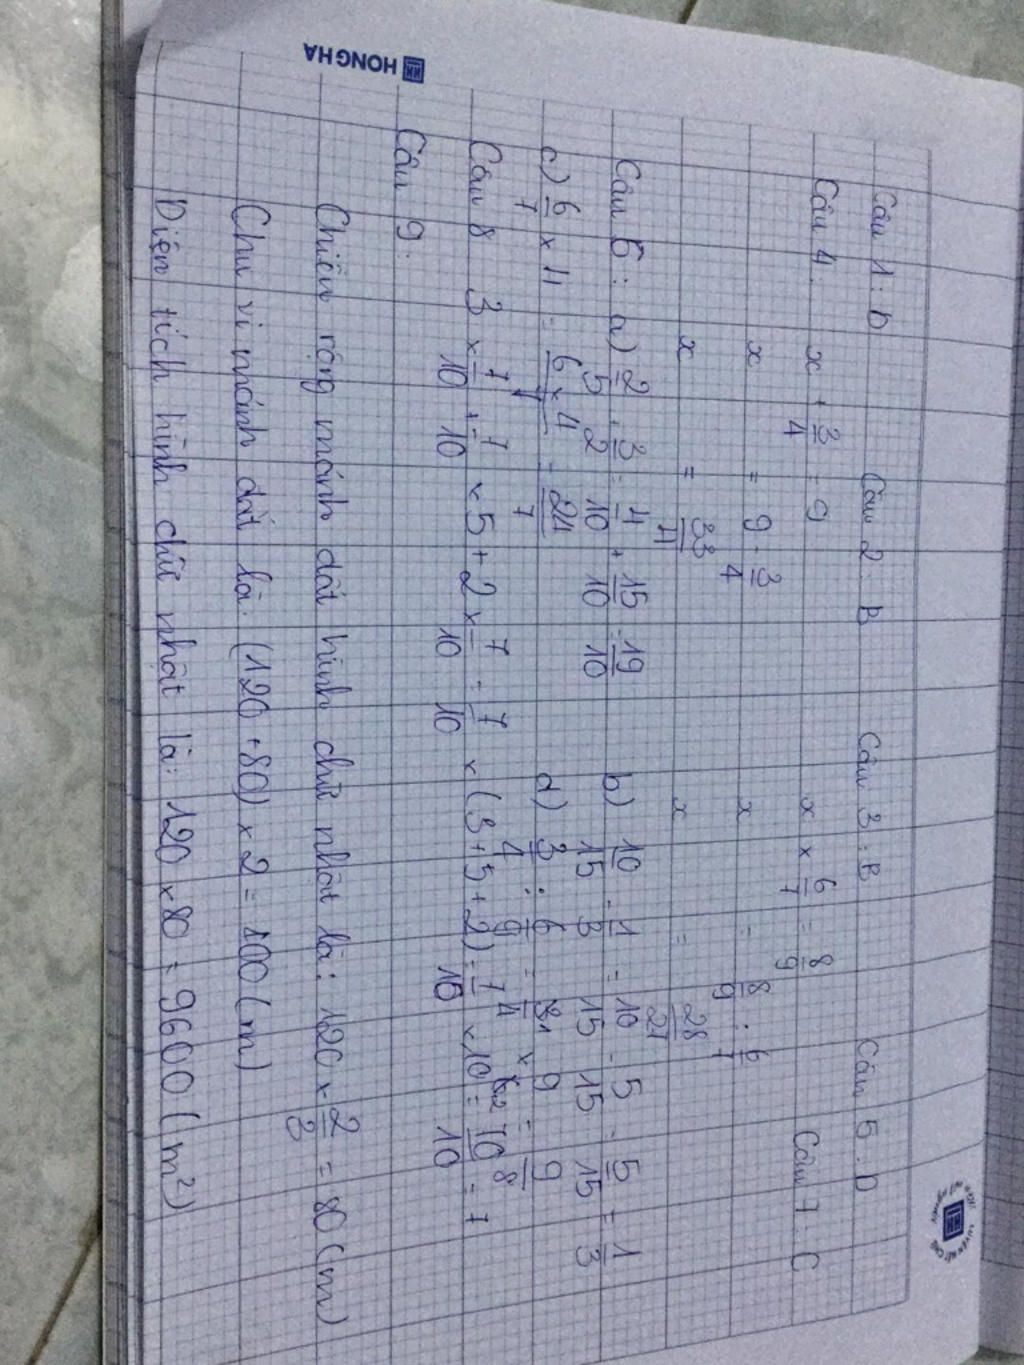 HONG HA
Câu 1: D Câu 2: B Câu 3: B Câu 5: D
Câu 4: x + 3/4 = 9 x × 6/7 = 8/9 Câu 7: C
x = 9 - 3/4 x = 8/9 : 6/7
x = 33/4 x = 28/27
Câu 6: a) 2/5 + 3/2 = 4/10 + 15/10 = 19/10 b) 10/15 - 1/3 = 10/15 - 5/15 = 5/15 = 1/3
c) 6/7 × 4 = 6 × 4/7 = 24/7 d) 3/4 : 6/9 = 3 1/4 × 9/6 2 = 9/8
Câu 8 3 × 7/10 + 7/10 × 5 + 2 × 7/10 = 7/10 × (3 + 5 + 2) = 7/10 × 10 = 10/10 = 1
Câu 9:
Chiều rộng mảnh đất hình chữ nhật là: 120 × 2/3 = 80 (m)
Chu vi mảnh đất là: (120 + 80) × 2 = 400 (m)
Diện tích hình chữ nhật là: 120 × 80 = 9600 (m²)